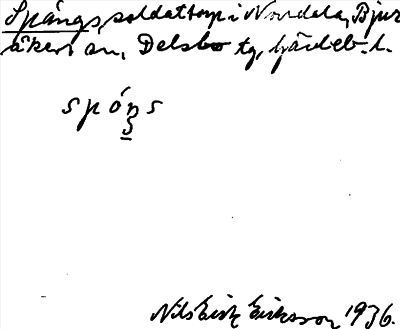 Spångs, soldattorp i Norrdela, Bjur
åkers sn, Delsbo tg, Gävleb. l.
spóŋs
Nils Erik Eriksson 1936.